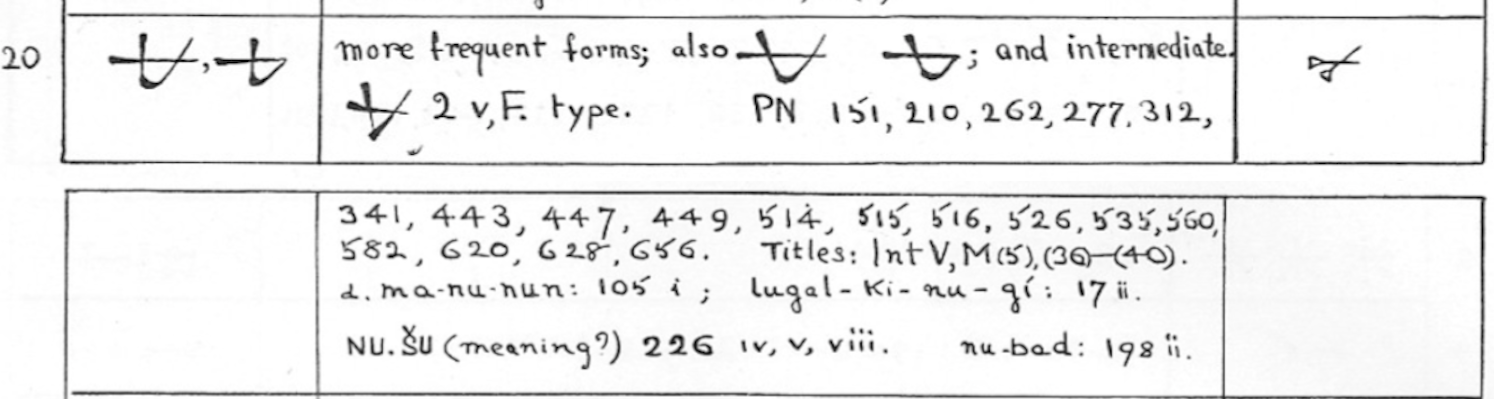 20 more frequent forms; also ; and intermediate.
2 v, F. type. PN 151, 210, 262, 277, 312,
341, 443, 447, 449, 514, 515, 516, 526, 535, 560,
582, 620, 628, 656. Titles: Int V, M(5), (36)–(40).
d. ma-nu-nun: 105 i; lugal-Ki-nu-gí: 17 ii.
NU. ŠU (meaning?) 226 iv, v, viii. nu-bad: 198 ii.